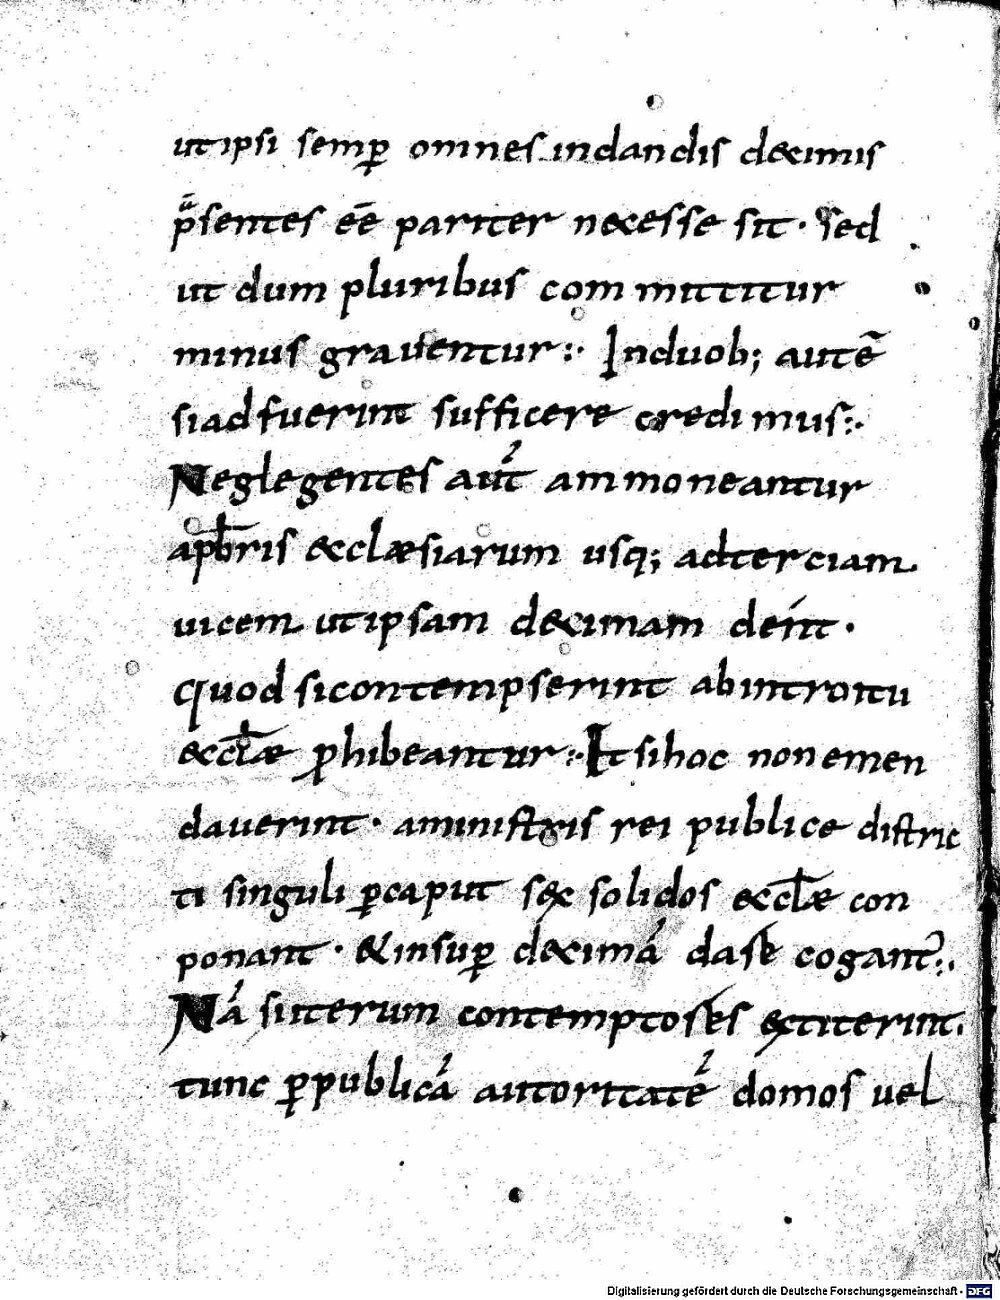 ut ipsi semꝑ omnes in dandis decimis
p̄sentes eē pariter necesse sit · sed
ut dum pluribus committitur
minus graventur :· Induob; autē
si ad fuerint sufficere credimus :·
Neglegentes aut̄ ammoneantur
a p̄bris ecclæsiarum usq; ad terciam
uicem ut ipsam decimam dent ·
quod si contempserint ab introitu
eccl̄æ ꝓhibeantur :· Et si hoc non emen
dauerint · a ministris rei publice distric
ti singuli ꝑ caput sex solidos eccl̄æ con
ponant · & insuꝑ decimā dare cogant̄ :·
Nā si iterum contemptores extiterint.
tunc ꝑ publicā autoritatē domos uel
Digitalisierung gefördert durch die Deutsche Forschungsgemeinschaft - DFG